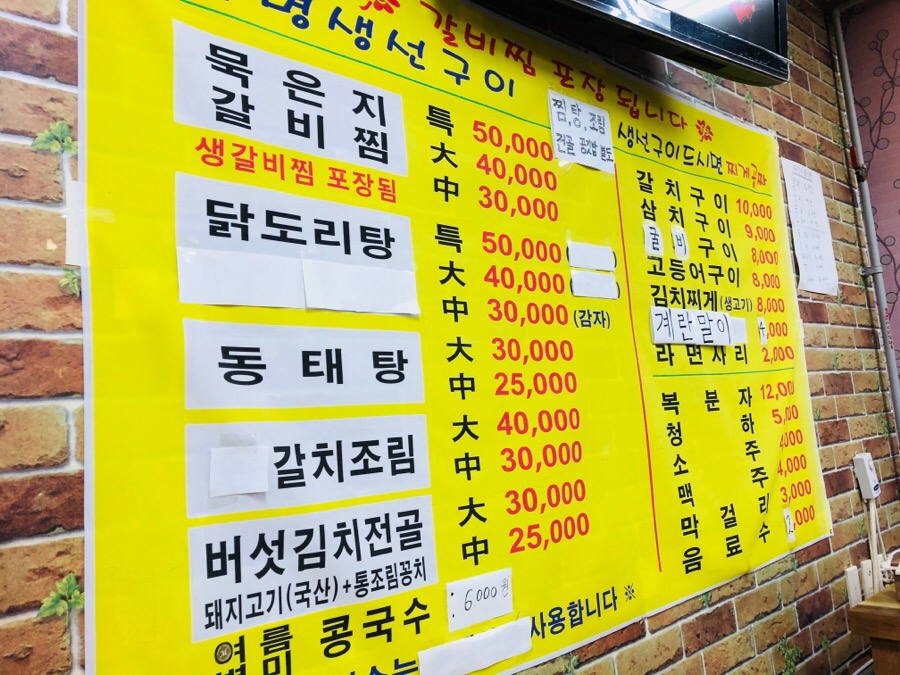 갈비찜 포장 됩니다
명생선구이
묵은지
갈비찜
특 50,000
대 40,000
中 30,000
생갈비찜 포장됨
닭도리탕
특 50,000
대 40,000
中 30,000 (감자)
동태탕
大 30,000
中 25,000
갈치조림
大 40,000
中 30,000
버섯김치전골
돼지고기(국산)+통조림꽁치
大 30,000
中 25,000
여름 콩국수 : 6.000원
별미
사용합니다 ※
찜, 탕, 조림
전골 공기밥 별도
생선구이드시면 찌게공짜
갈치구이 10,000
삼치구이 9,000
굴비구이 8,000
고등어구이 8,000
김치찌게(생고기) 8,000
계란말이 4,000
라면사리 2,000
복분자 12,000
청하 5,000
소주
맥주 4,000
막걸리 3,000
음료수 2,000